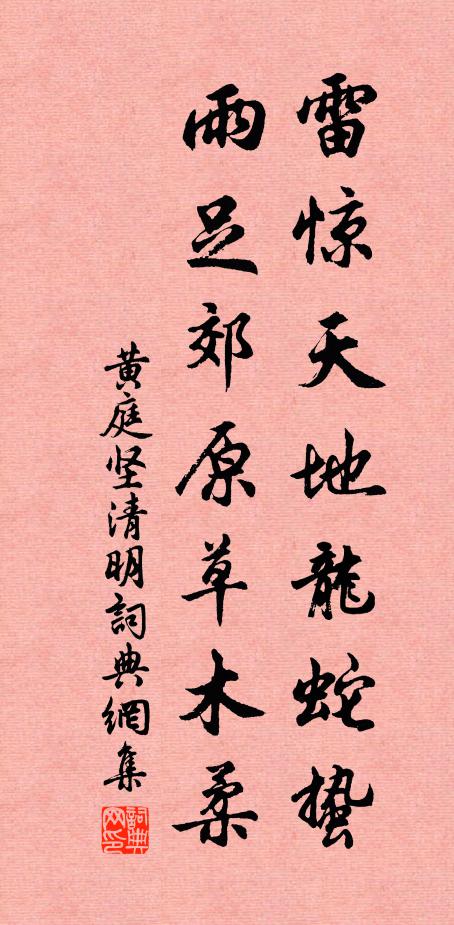 雷惊天地龍蛇蛰
雨足郊原草木柔
黄庭坚清明詞典網集
詞典网印